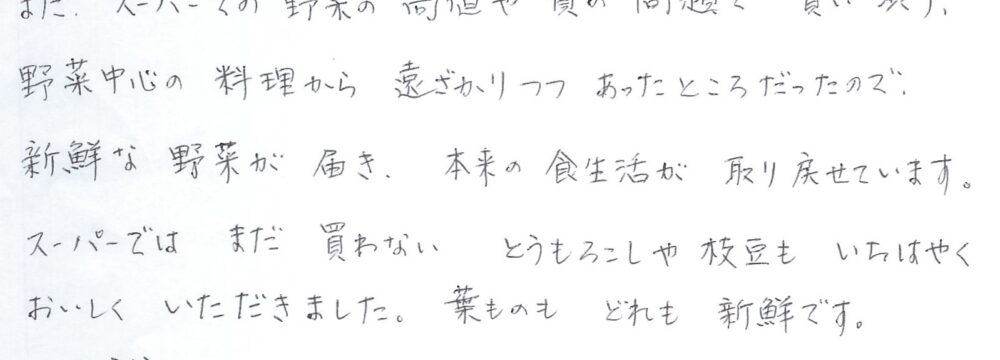 また、スーパーでの 野菜の 高値や 質の 問題で 買い
野菜中心の 料理から 遠ざかりつつ あったところだったので、
新鮮な 野菜が 届き、 本来の 食生活が 取り戻せています。
スーパーでは まだ 買わない とうもろこしや 枝豆も いちはやく
おいしく いただきました。 葉ものも どれも 新鮮です。